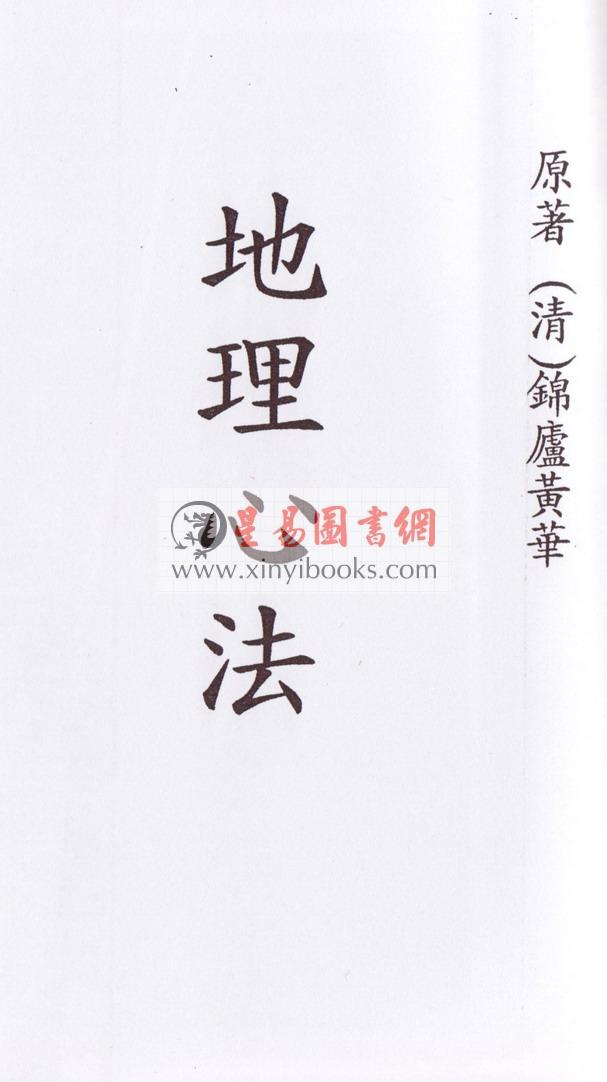 原著（清）錦廬黃華
地理心法
星易圖書網
www.xinyibooks.com